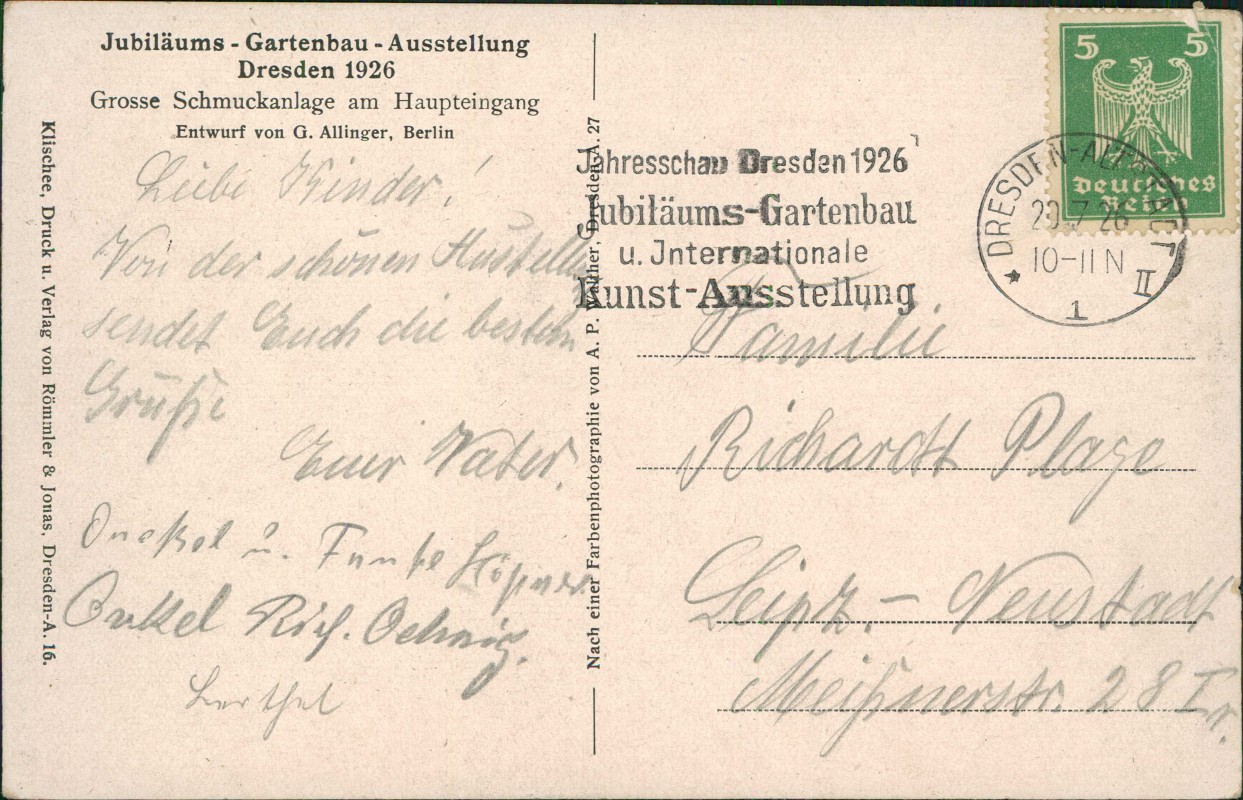 Jubiläums - Gartenbau - Ausstellung
Dresden 1926
Grosse Schmuckanlage am Haupteingang
Entwurf von G. Allinger, Berlin
Klischee, Druck u. Verlag von Römmler & Jonas, Dresden-A. 16.
Liebe Kinder!
Von der schönen Ausstellung
sendet Euch die besten
Grüße
Euer Vater.
Onkel u. Tante
Onkel Rich.
Nach einer Farbenphotographie von A. P. Walther, Dresden-A. 27
Jahresschau Dresden 1926
Jubiläums-Gartenbau
u. Jnternationale
Kunst-Ausstellung
5 5
Deutsches
Reich
DRESDEN-ALTSTADT
20.7.26
10-11 N
II
1
Familie
Richardt Plage
Leipz. - Neustadt
Meißnerstr. 28 I r.